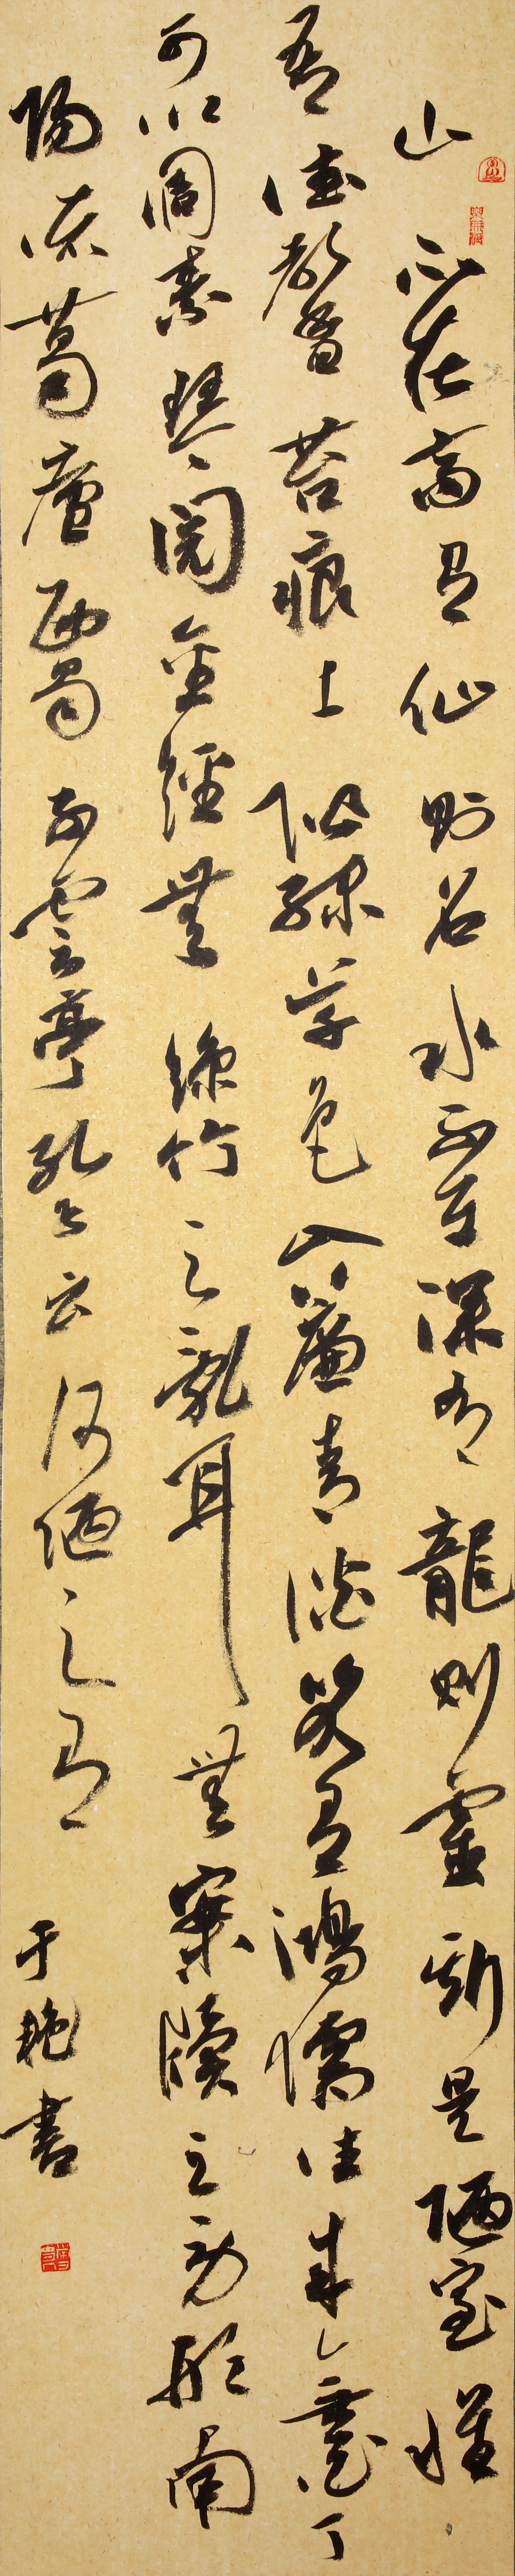 山不在高有仙則名水不在深有龍則靈斯是陋室惟
吾德馨苔痕上階綠草色入簾青談笑有鴻儒往來無白丁
可以調素琴閱金經無絲竹之亂耳無案牘之勞形南
陽諸葛廬西蜀子雲亭孔子云何陋之有
于艳書